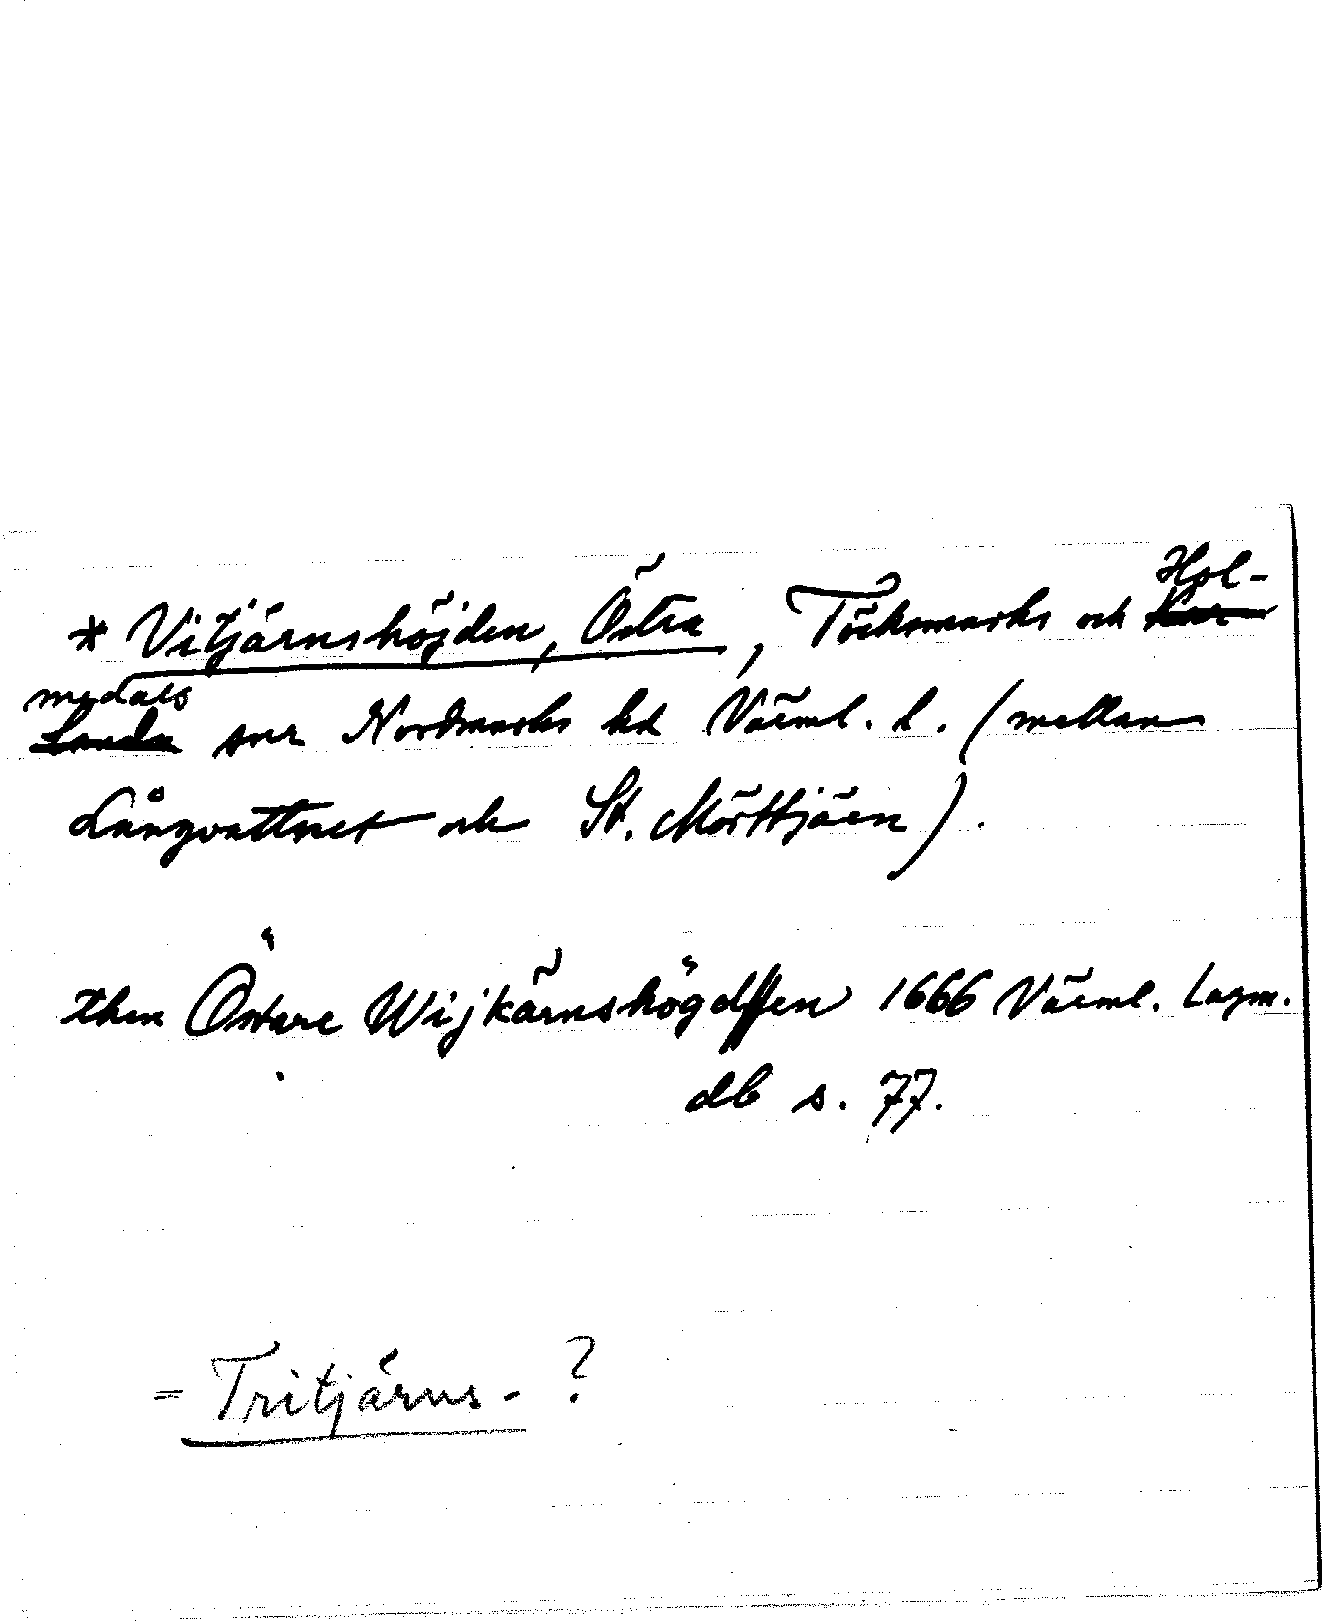 * Vitjärnshöjden, Östra, Töcksmarks och Hol-
medals snr Nordmarks hd Värml. l. (mellan
Långvattnet och St. Mörttjärn).
then Östare Wijkärnshögdhen 1666 Värml. Lagm.
db s. 77.
= Tritjärns- ?